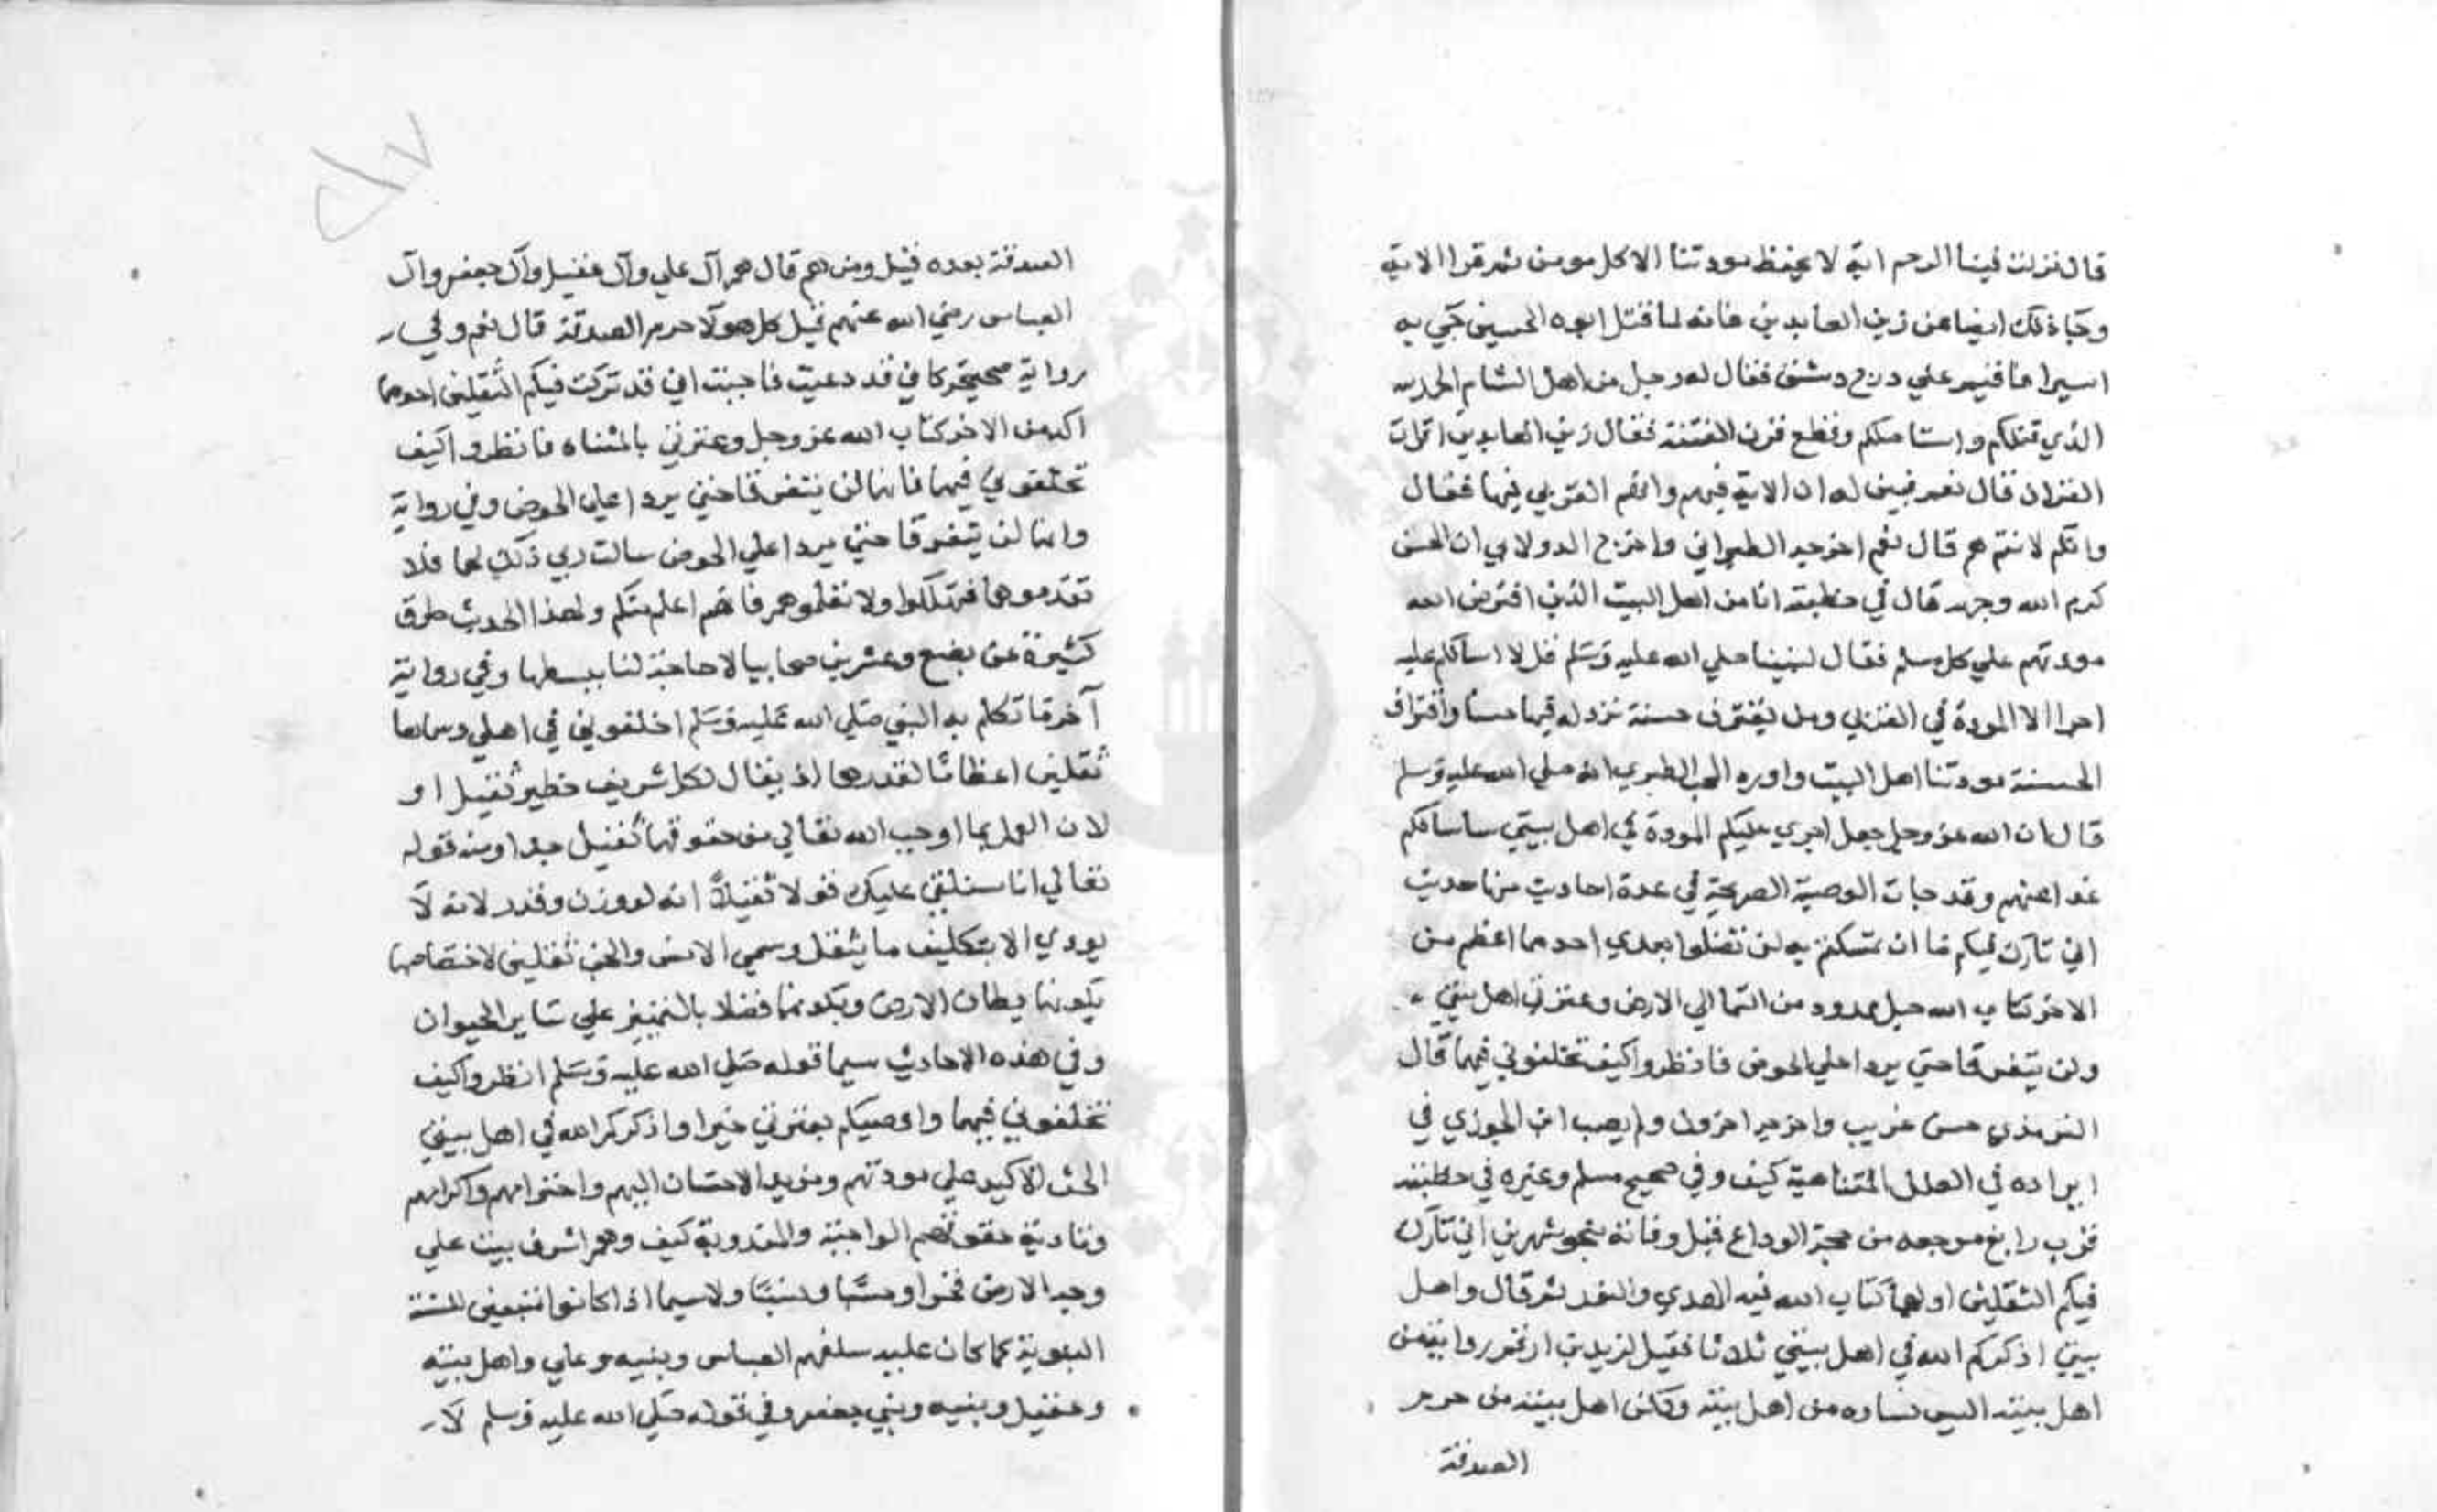 قال نزلت فينا الرحم اية لا يحفظ مودتنا الا كل مومن ثم قرا الاية
وجا ذلك ايضا عن زين العابدين فانه لما قتل ابوه الحسين جي به
اسيرا فاقيم علي درج دمشق فقال له رجل من اهل الشام الحمد لله
الذي قتلكم واستاصلكم وقطع قرن الفتنة فقال زين العابدين اقرات
القران قال نعم فبين له ان الاية فيهم وانهم القربي فيها فقال
وانكم لانتم هم قال نعم اخرجه الطبراني واخرج الدولابي ان الحسن
كرم الله وجهه قال في خطبته انا من اهل البيت الذين افترض الله
مودتهم علي كل مسلم فقال لنبينا صلي الله عليه وسلم قل لا اسالكم عليه
اجرا الا المودة في القربي ومن يقترف حسنة نزد له فيها حسنا واقتراف
الحسنة مودتنا اهل البيت واورد المحب الطبري انه صلي الله عليه وسلم
قال ان الله عز وجل جعل اجري عليكم المودة في اهل بيتي ساسالكم
غدا عنهم وقد جات الوصية الصريحة في عدة احاديث منها حديث
اني تارك فيكم ما ان تمسكتم به لن تضلوا بعدي احدهما اعظم من
الاخر كتاب الله حبل ممدود من السما الي الارض وعترتي اهل بيتي
ولن يتفرقا حتي يردا علي الحوض فانظروا كيف تخلفوني فيهما قال
الترمذي حسن غريب واخرجه اخرون ولم يصب ابن الجوزي في
ايراده في العلل المتناهية كيف وفي صحيح مسلم وغيره في خطبته
قرب رابغ مرجعه من حجة الوداع قبل وفاته بنحو شهرين اني تارك
فيكم الثقلين اولهما كتاب الله فيه الهدي والنور ثم قال واهل
بيتي اذكركم الله في اهل بيتي ثلاثا فقيل لزيد بن ارقم راويه من
اهل بيته اليس نساوه من اهل بيته قال اهل بيته من حرم
الصدقة
الصدقة بعده قيل ومن هم قال هم آل علي وآل عقيل وآل جعفر وآل
العباس رضي الله عنهم قيل كل هولا حرم الصدقة قال نعم وفي
رواية صحيحة كاني قد دعيت فاجبت اني قد تركت فيكم الثقلين احدهما
اكبر من الاخر كتاب الله عز وجل وعترتي بالمثناه فانظروا كيف
تخلفوني فيهما فانهما لن يتفرقا حتي يردا علي الحوض وفي رواية
وانهما لن يتفرقا حتي يردا علي الحوض سالت ربي ذلك لهما فلا
تقدموهما فتهلكوا ولا تعلموهم فانهم اعلم منكم ولهذا الحديث طرق
كثيرة عن بضع وعشرين صحابيا لا حاجة لنا ببسطها وفي رواية
آخر ما تكلم به النبي صلي الله عليه وسلم اخلفوني في اهلي وسماهما
ثقلين اعظاما لقدرهما اذ يقال لكل شريف خطير ثقيل او
لان العمل بما اوجب الله تعالي من حقوقهما ثقيل جدا ومنه قوله
تعالي انا سنلقي عليك قولا ثقيلا انه له وزن وقدر لانه لا
يودي الا بتكليف ما يثقل وسمي الانس والجن ثقلين لاختصاصهما
بكونهما قطان الارض وبكونهما فضلا بالتمييز علي ساير الحيوان
وفي هذه الاحاديث سيما قوله صلي الله عليه وسلم انظروا كيف
تخلفوني فيهما واوصيكم بعترتي خيرا واذكركم الله في اهل بيتي
الحث الاكيد علي مودتهم ومزيد الاحسان اليهم واحترامهم واكرامهم
وتادية حقوقهم الواجبة والمندوبة كيف وهم اشرف بيت علي
وجه الارض فخرا وحسبا ونسبا ولا سيما اذا كانوا متبعين للسنة
النبوية كما كان عليه سلفهم العباس وبنيه وعلي واهل بيته
وعقيل وبنيه وبني جعفر وفي قوله صلي الله عليه وسلم لا